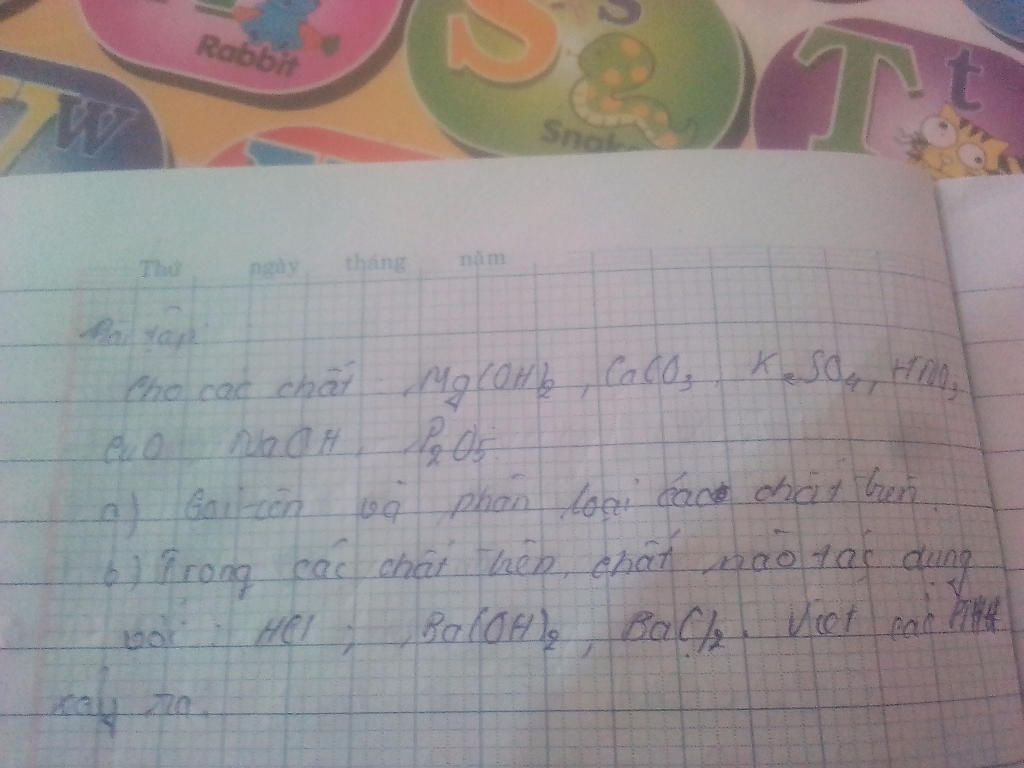 Rabbit
S s
Snake
T t
W
Thứ ngày tháng năm
Bài tập
Cho các chất Mg(OH)2, CaCO3, K2SO4, HNO3
CuO, NaOH, P2O5
a) Gọi tên và phân loại các chất trên.
b) Trong các chất trên, chất nào tác dụng
với : HCl ; Ba(OH)2, BaCl2. Viết các PTHH
xảy ra.